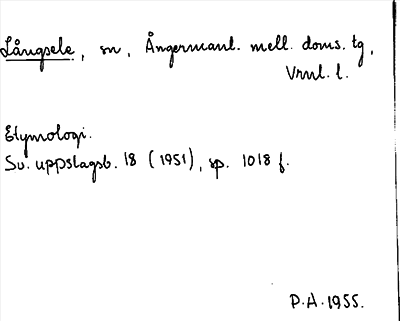 Långsele, sn, Ångermanl. mell. doms. tg,
Vrnl. l.
Etymologi.
Sv. uppslagsb. 18 (1951), sp. 1018 f.
P.A. 1955.